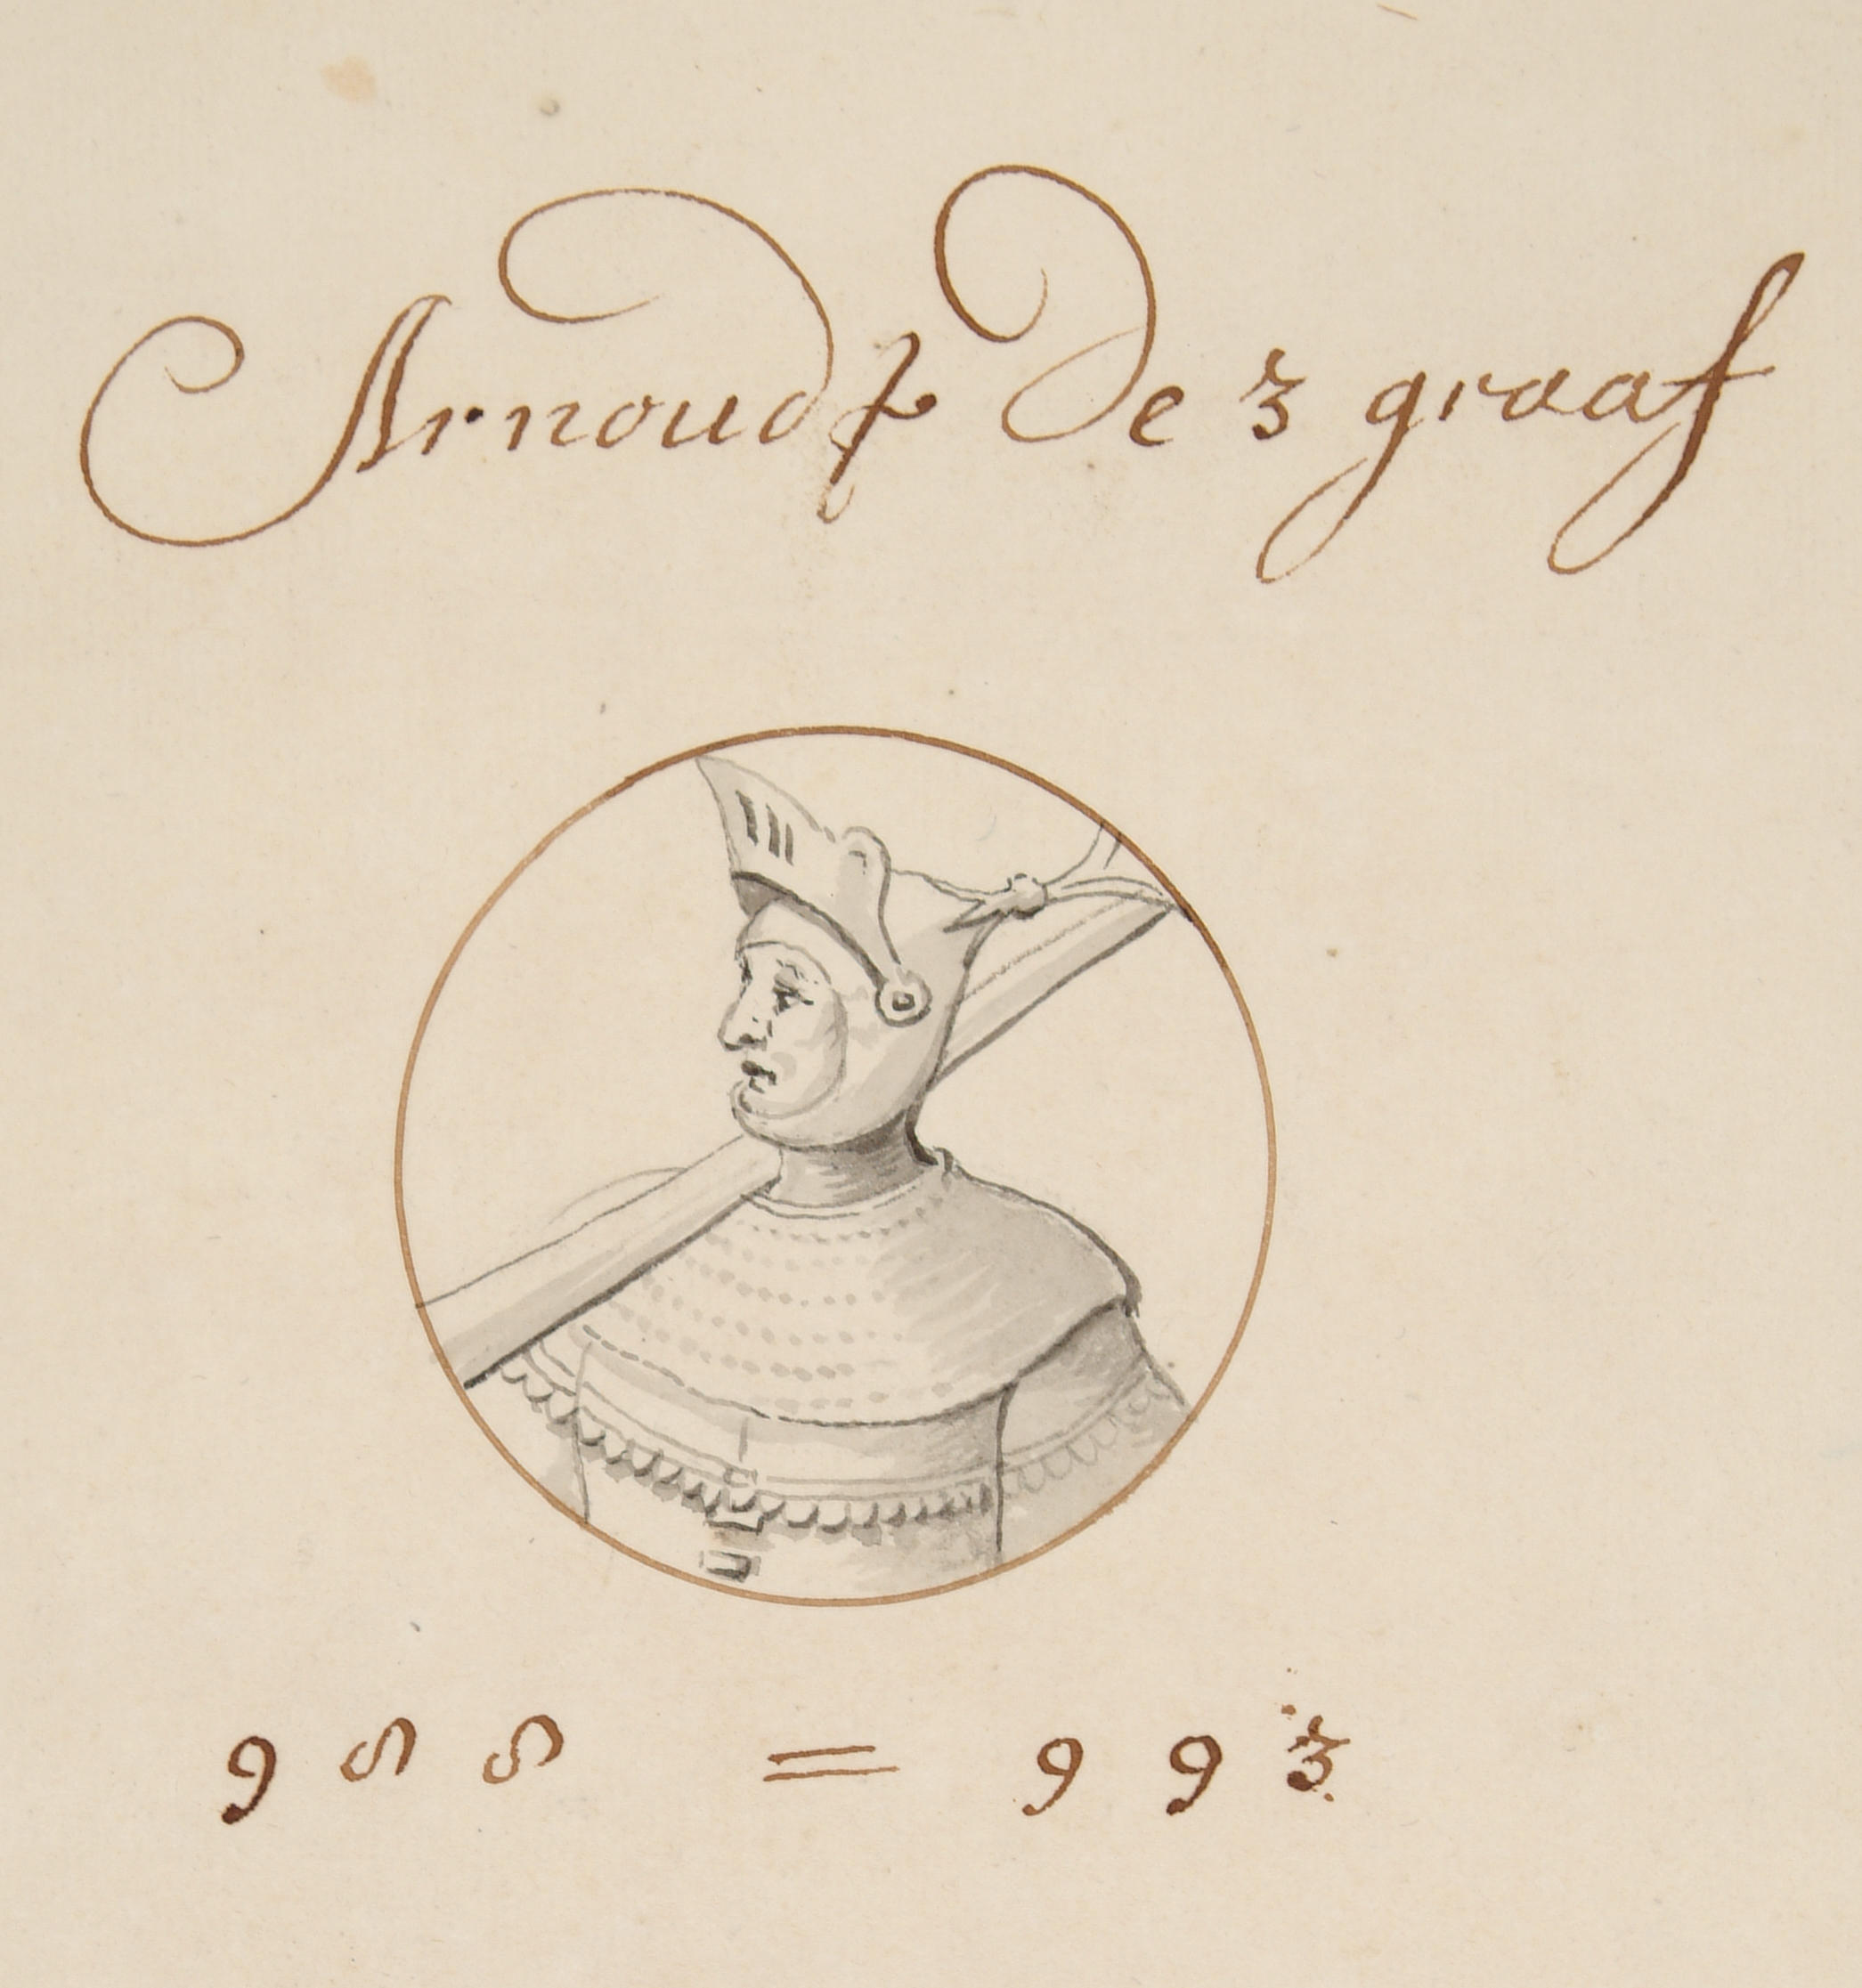 Arnoudt de 3 graaf
988 = 993